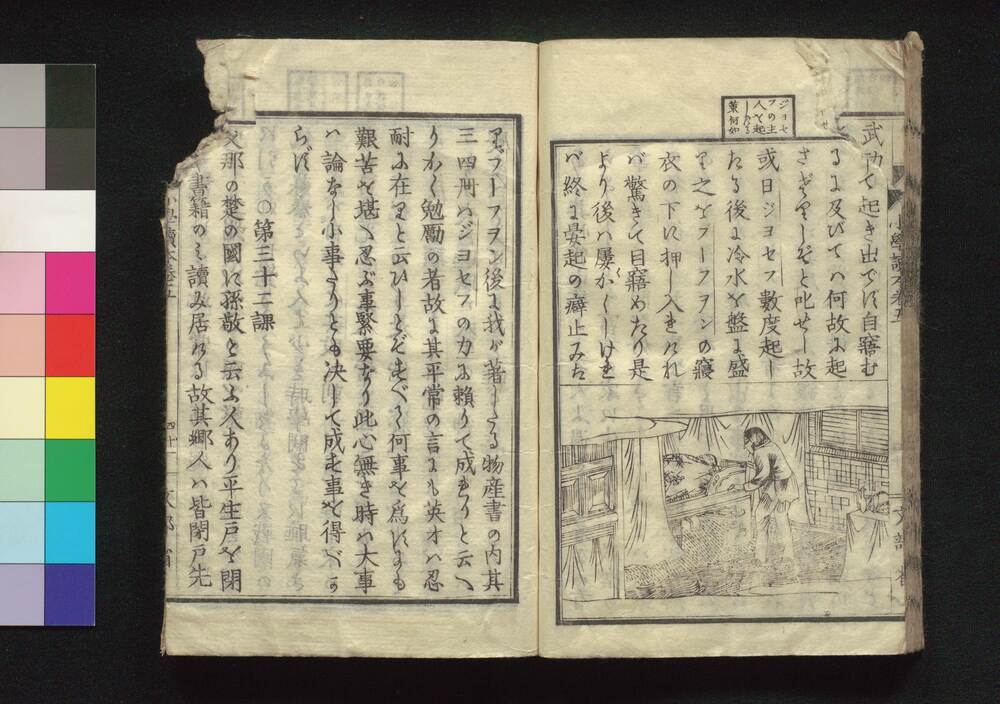 ジヨセ
フの主
人を起
しゝる
策何如
武功て起き出でに自寤む
るに及びてハ何故に起
さゞりしぞと叱せし故
或日ジヨセフ數度起し
たる後に冷水を盤に盛
り之をブーフヲンの寢
衣の下に押し入きけれ
バ驚きて目寤めたり是
より後ハ屡かくしけき
バ終に晏起の癖止みた
りブーフヲン後に我が著したる物産書の内其
三四冊ハジヨセフの力に賴りて成まりと云へ
りかく勉勵の者故に其平常の言にも英才ハ忍
耐に在りと云ひしとぞすべて何事を爲にも
艱苦を堪へ忍ぶ事緊要なり此心無き時ハ大事
ハ論なし小事たりとも決して成す事を得べか
らず
第三十二課
支那の楚の國に孫敬と云ふ人あり平生戸を閉
書籍のミ讀み居ける故其郷人ハ皆閉戸先
小學讀本卷五
四十一
文部省